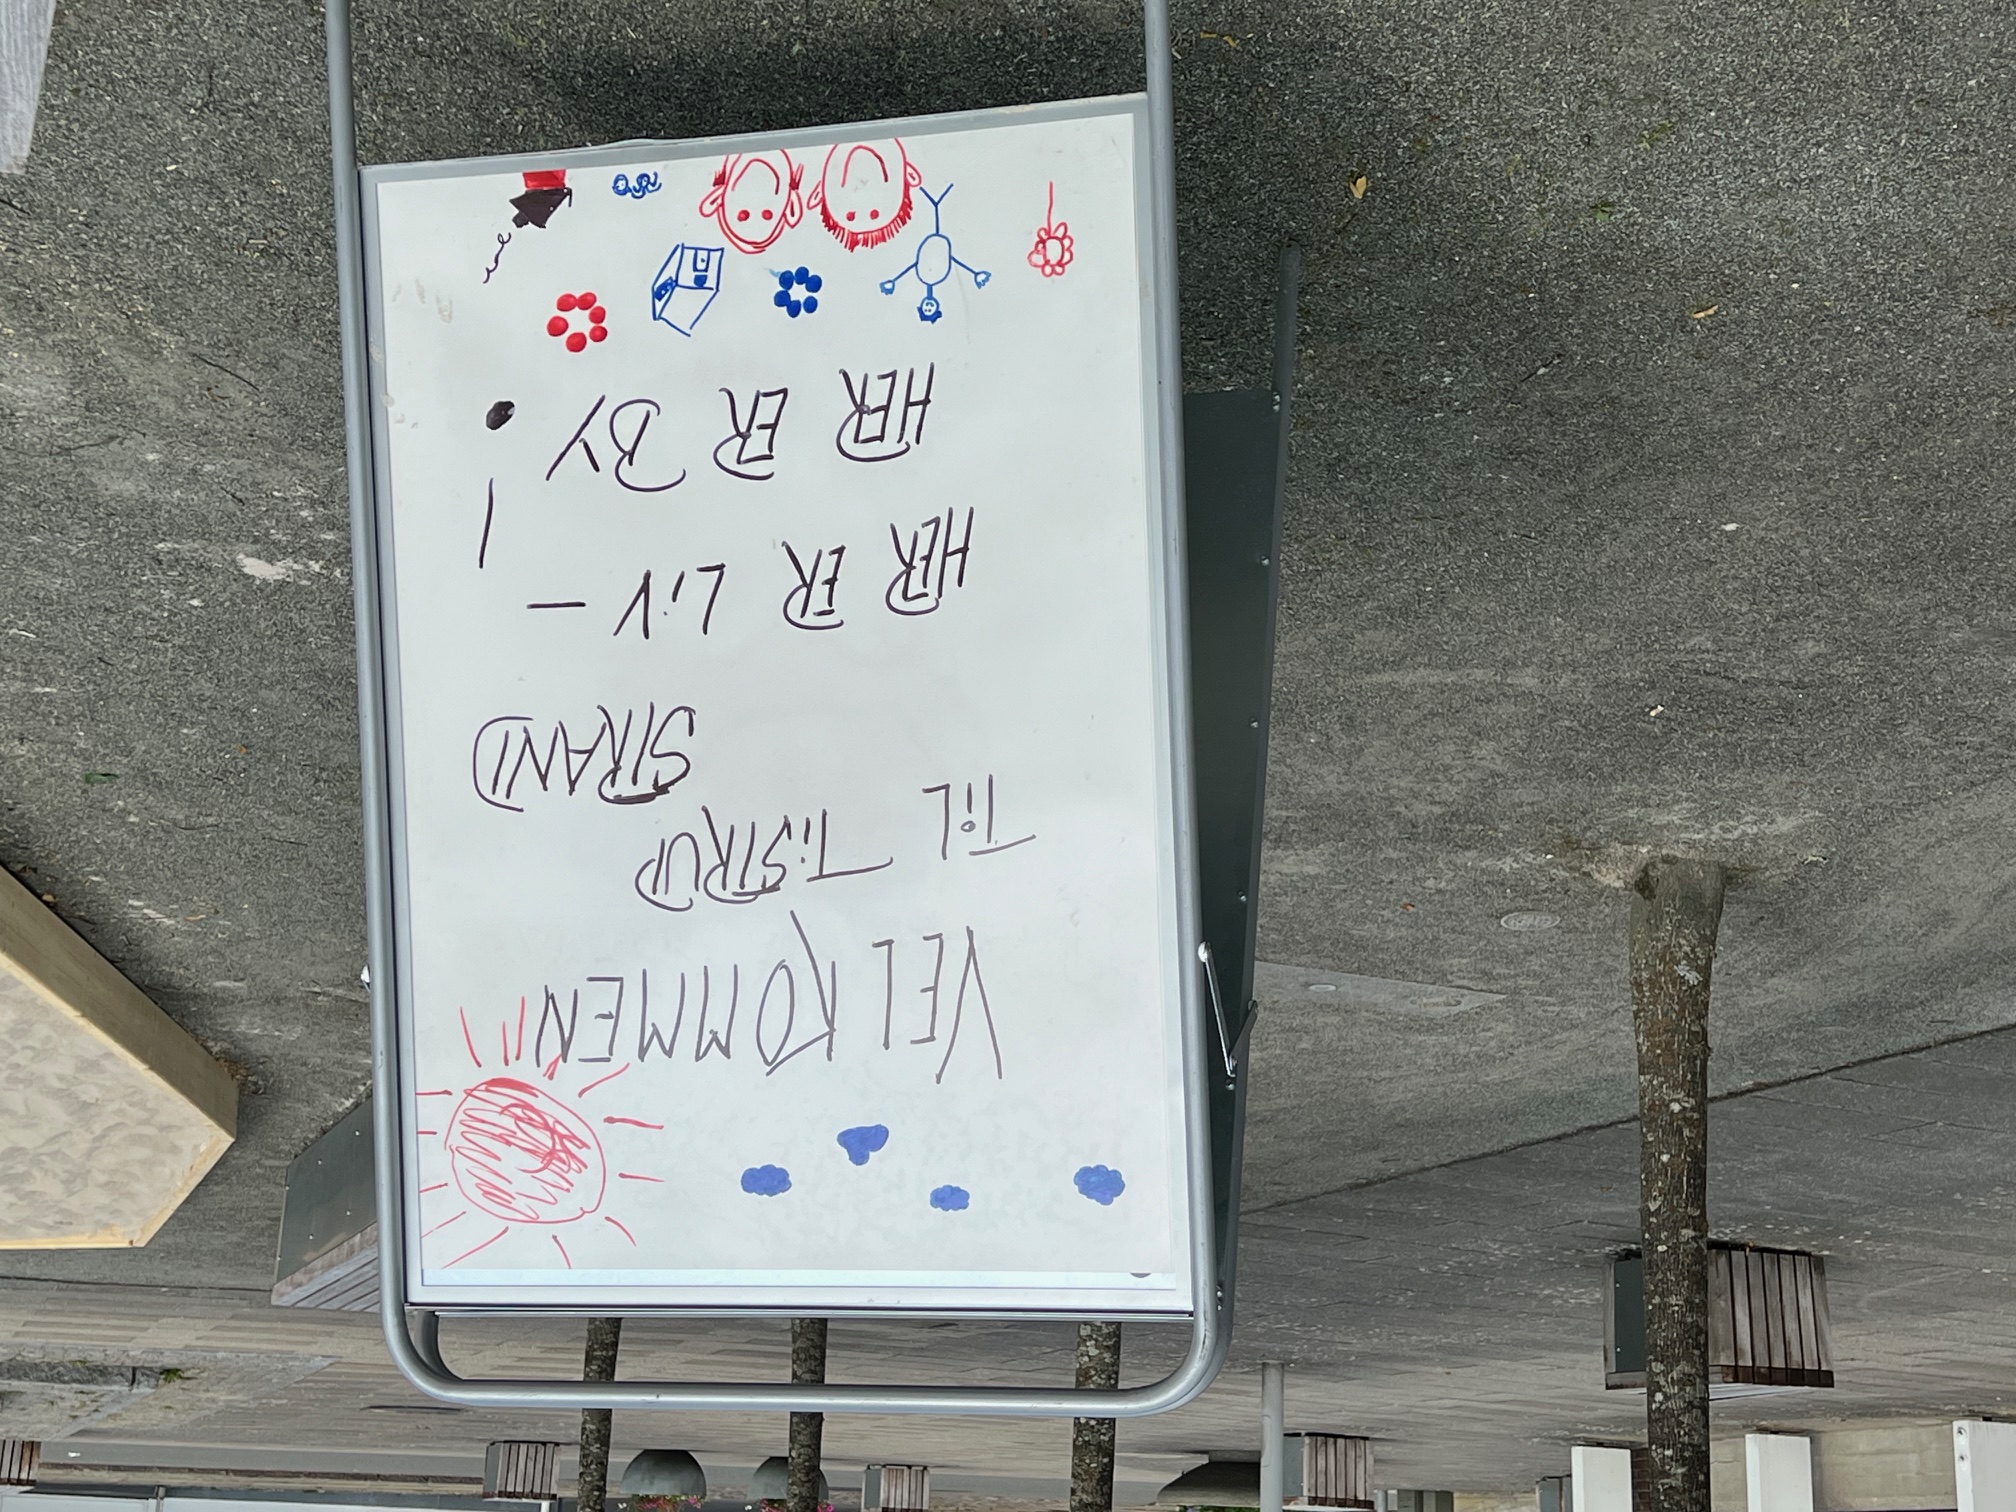 VELKOMMEN
TIL TISTRUP
STRAND
HER ER LIV -
HER ER BY !